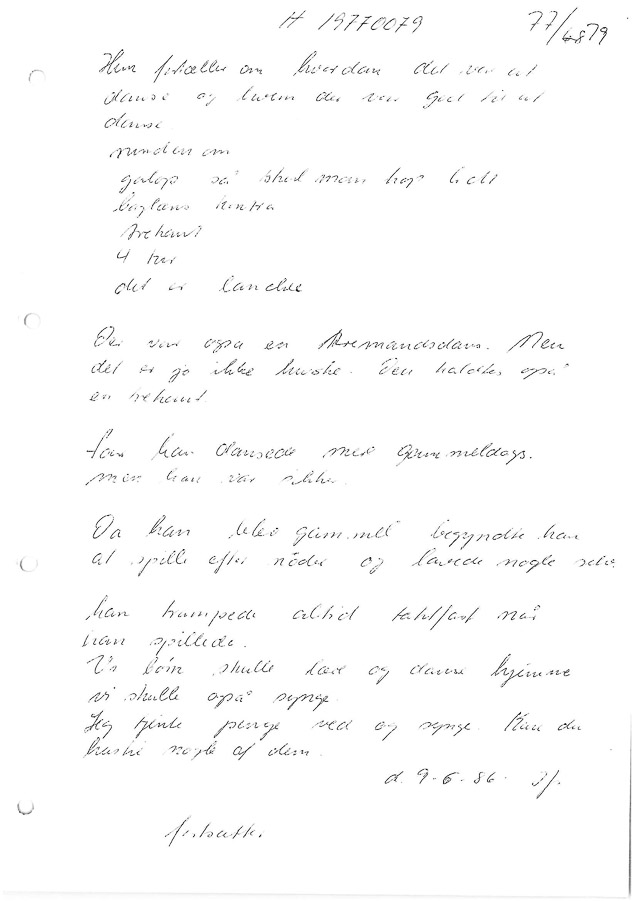 H 19770079 77/4879
Hun fortæller om hvordan det var at
danse og hvem der var god til at
danse.
runden om
galop så skul man hop lidt
baglens
trekant
4 tur
det er
Der var også en Tremandsdans. Men
det er jo ikke huske. Den kaldtes også
en trekant
far han dansede mere gammeldags.
men han var ikke
Da han blev gammel begyndte han
at spille efter noder og lavede nogle selv.
han trampede altid taktfast når
han spillede.
Vi børn skulle lære og danse hjemme
vi skulle også synge.
Jeg tjente penge ved og synge. Kan du
huske nogle af dem.
d. 9-6-86.
fortsætter